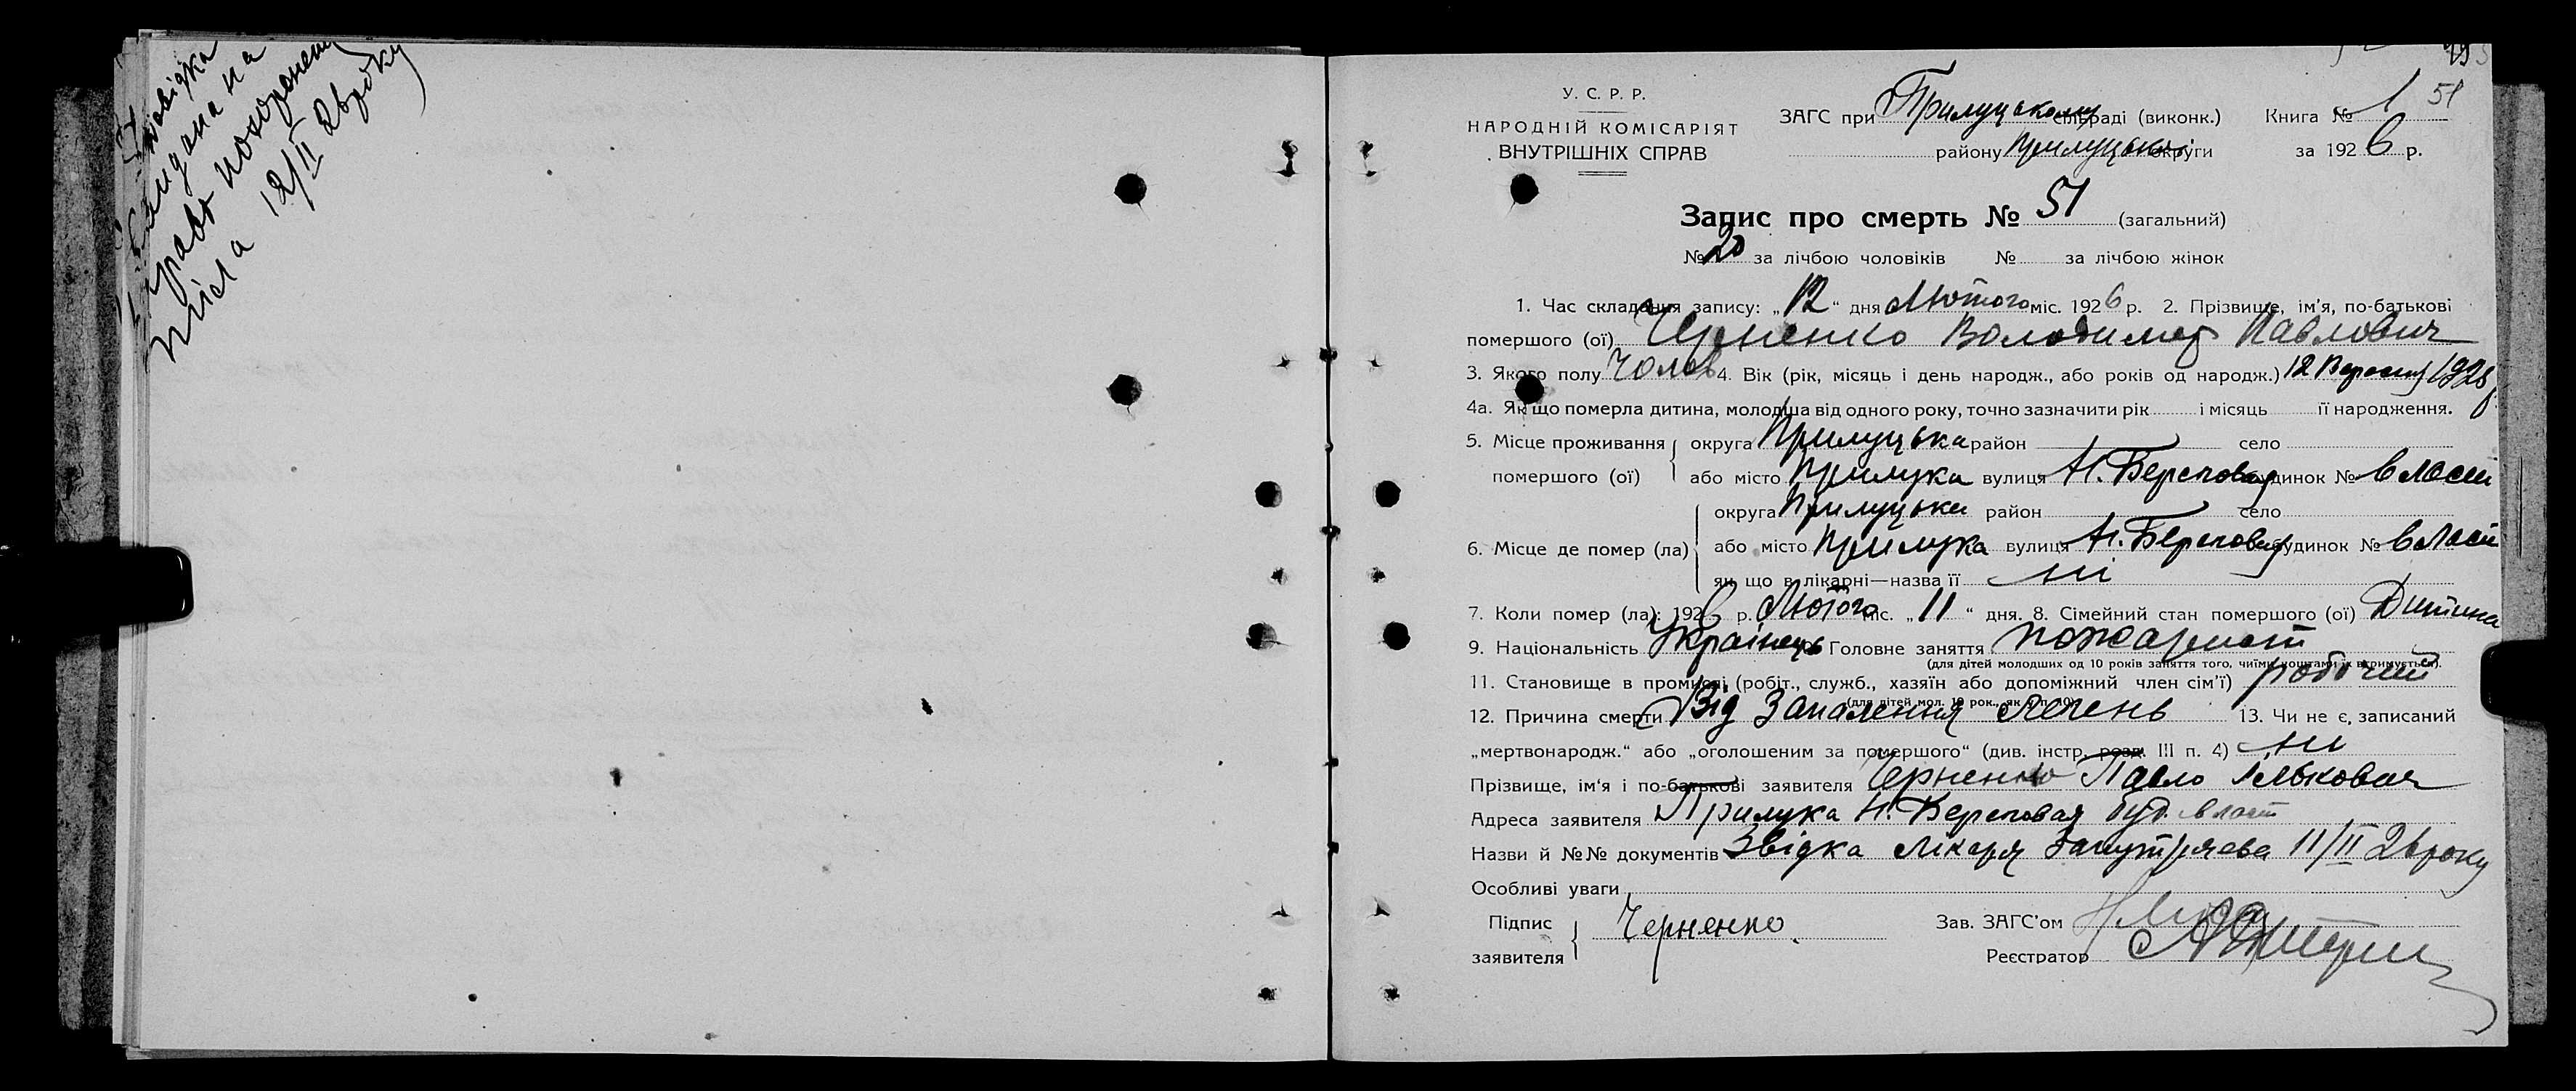 видана на
право похоронены
тіла 12/II 26 року
51
У. С. Р. Р.
НАРОДНІЙ КОМІСАРІЯТ
ВНУТРІШНІХ СПРАВ
ЗАГС при Прилуцькому сільраді (виконк.) Книга № 1
району Прилуцької округи за 1926 р.
Запис про смерть № 51 (загальний)
№ 20 за лічбою чоловіків № за лічбою жінок
1. Час складання запису: „12“ дня Лютого міс. 1926 р. 2. Прізвище, ім'я, по-батькові
помершого (ої) Черненко Володимер Павлович
3. Якого полу Чолов 4. Вік (рік, місяць і день народж., або років од народж.) 12 Вересня
4а. Як що померла дитина, молодша від одного року, точно зазначити рік і місяць її народження.
5. Місце проживання округа Прилуцька район село
помершого (ої) або місто Прилука вулиця Н. Береговая будинок № власн
округа Прилуцька район село
6. Місце де помер (ла) або місто Прилука вулиця Н. Береговая будинок № власн
як що в лікарні—назва її ні
7. Коли помер (ла): 1926 р. Лютого міс. „11“ дня. 8. Сімейний стан помершого (ої) Дитина
9. Національність Українець Головне заняття пожарист
(для дітей молодших од 10 років заняття того, чиїми коштами їх втримується).
11. Становище в промислі (робіт., служб., хазяїн або допоміжний член сім'ї) робочий
(для дітей мол. 10 рок., як у п. 10)
12. Причина смерти Від Запалення легень 13. Чи не є, записаний
„мертвонародж.“ або „оголошеним за помершого“ (див. інстр. розд. III п. 4) ні
Прізвище, ім'я і по-батькові заявителя Черненко Павло
Адреса заявителя Прилука Н. Береговая буд. власн
Назви й №№ документів Звідка лікаря 11/II 26 року
Особливі уваги
Підпис заявителя Черненко Зав. ЗАГС'ом
Реєстратор